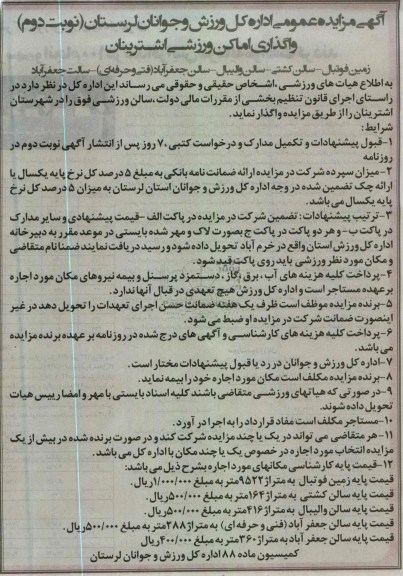 آگهی مزایده عمومی اداره کل ورزش و جوانان لرستان (نوبت دوم)
واگذاری اماکن ورزشی اشترینان
زمین فوتبال - سالن کشتی - سالن والیبال - سالن جعفرآباد (فنی و حرفه ای) - سالت جعفرآباد
به اطلاع هیات های ورزشی ، اشخاص حقیقی و حقوقی می رساند این اداره کل در نظر دارد در
راستای اجرای قانون تنظیم بخشی از مقررات مالی دولت ، سالن ورزشی فوق را در شهرستان
اشترینان را از طریق مزایده واگذار نماید.
شرایط :
۱-قبول پیشنهادات و تکمیل مدارک و درخواست کتبی ۷۰ روز پس از انتشار آگهی نوبت دوم در
روزنامه
۲-میزان سپرده شرکت در مزایده ارائه ضمانت نامه بانکی به مبلغ ۵ درصد کل نرخ پایه یکسال یا
ارائه چک تضمین شده در وجه اداره کل ورزش و جوانان استان لرستان به میزان ۵ درصد کل نرخ
پایه یکسال می باشد.
۳-ترتیب پیشنهادات : تضمین شرکت در مزایده در پاکت الف - قیمت پیشنهادی و سایر مدارک
در پاکت ب- و هر دو پاکت در پاکت ج بصورت لاک و مهر شده بایستی در موعد مقرر به دبیرخانه
اداره کل ورزش استان واقع در خرم آباد تحویل داده شود و رسید دریافت نمایند ضمنا نام متقاضی
و مکان مورد نظر ورزشی باید روی پاکت قید شود.
۴-پرداخت کلیه هزینه های آب ، برق ،گاز ، دستمزد پرسنل و بیمه نیروهای مکان مورد اجاره
بر عهده مستاجر است و اداره کل ورزش هیچ تعهدی در قبال آنها ندارد.
۵-برنده مزایده موظف است ظرف یک هفته ضمانت حسن اجرای تعهدات را تحویل دهد در غیر
اینصورت ضمانت شرکت در مزایده او ضبط می شود.
۶-پرداخت کلیه هزینه های کارشناسی و آگهی های درج شده در روزنامه بر عهده برنده مزایده
می باشد.
۷-اداره کل ورزش و جوانان در رد یا قبول پیشنهادات مختار است.
۸-برنده مزایده مکلف است مکان مورد اجاره خود را بیمه نماید.
۹-در صورتی که هیاتهای ورزشی متقاضی باشند کلیه اسناد بایستی با مهر و امضا رییس هیات
تحویل داده شوند.
۱۰-مستاجر مکلف است مفاد قرارداد را به اجرا در آورد.
۱۱-هر متقاضی می تواند در یک یا چند مزایده شرکت کند و در صورت برنده شده در بیش از یک
مزایده انتخاب مورد اجاره در خصوص یک یا چند مکان با اداره کل می باشد.
۱۲-قیمت پایه کارشناسی مکانهای مورد اجاره بشرح ذیل می باشد:
قیمت پایه زمین فوتبال به متراژ ۹۵۲۲ متر به مبلغ ۱/۰۰۰/۰۰۰ ریال.
قیمت پایه سالن کشتی به متراژ ۱۶۴ متر به مبلغ ۵۰۰/۰۰۰ ریال.
قیمت پایه سالن والیبال به متراژ ۴۱۶ متر به مبلغ ۵۰۰/۰۰۰ ریال.
قیمت پایه سالن جعفر آباد (فنی و حرفه ای) به متراژ ۲۸۸ متر به مبلغ ۵۰۰/۰۰۰ ریال.
قیمت پایه سالن جعفر آباد به متراژ ۳۶۰ متر به مبلغ ۴۰۰/۰۰۰ ریال
کمیسیون ماده ۸۸ اداره کل ورزش و جوانان لرستان